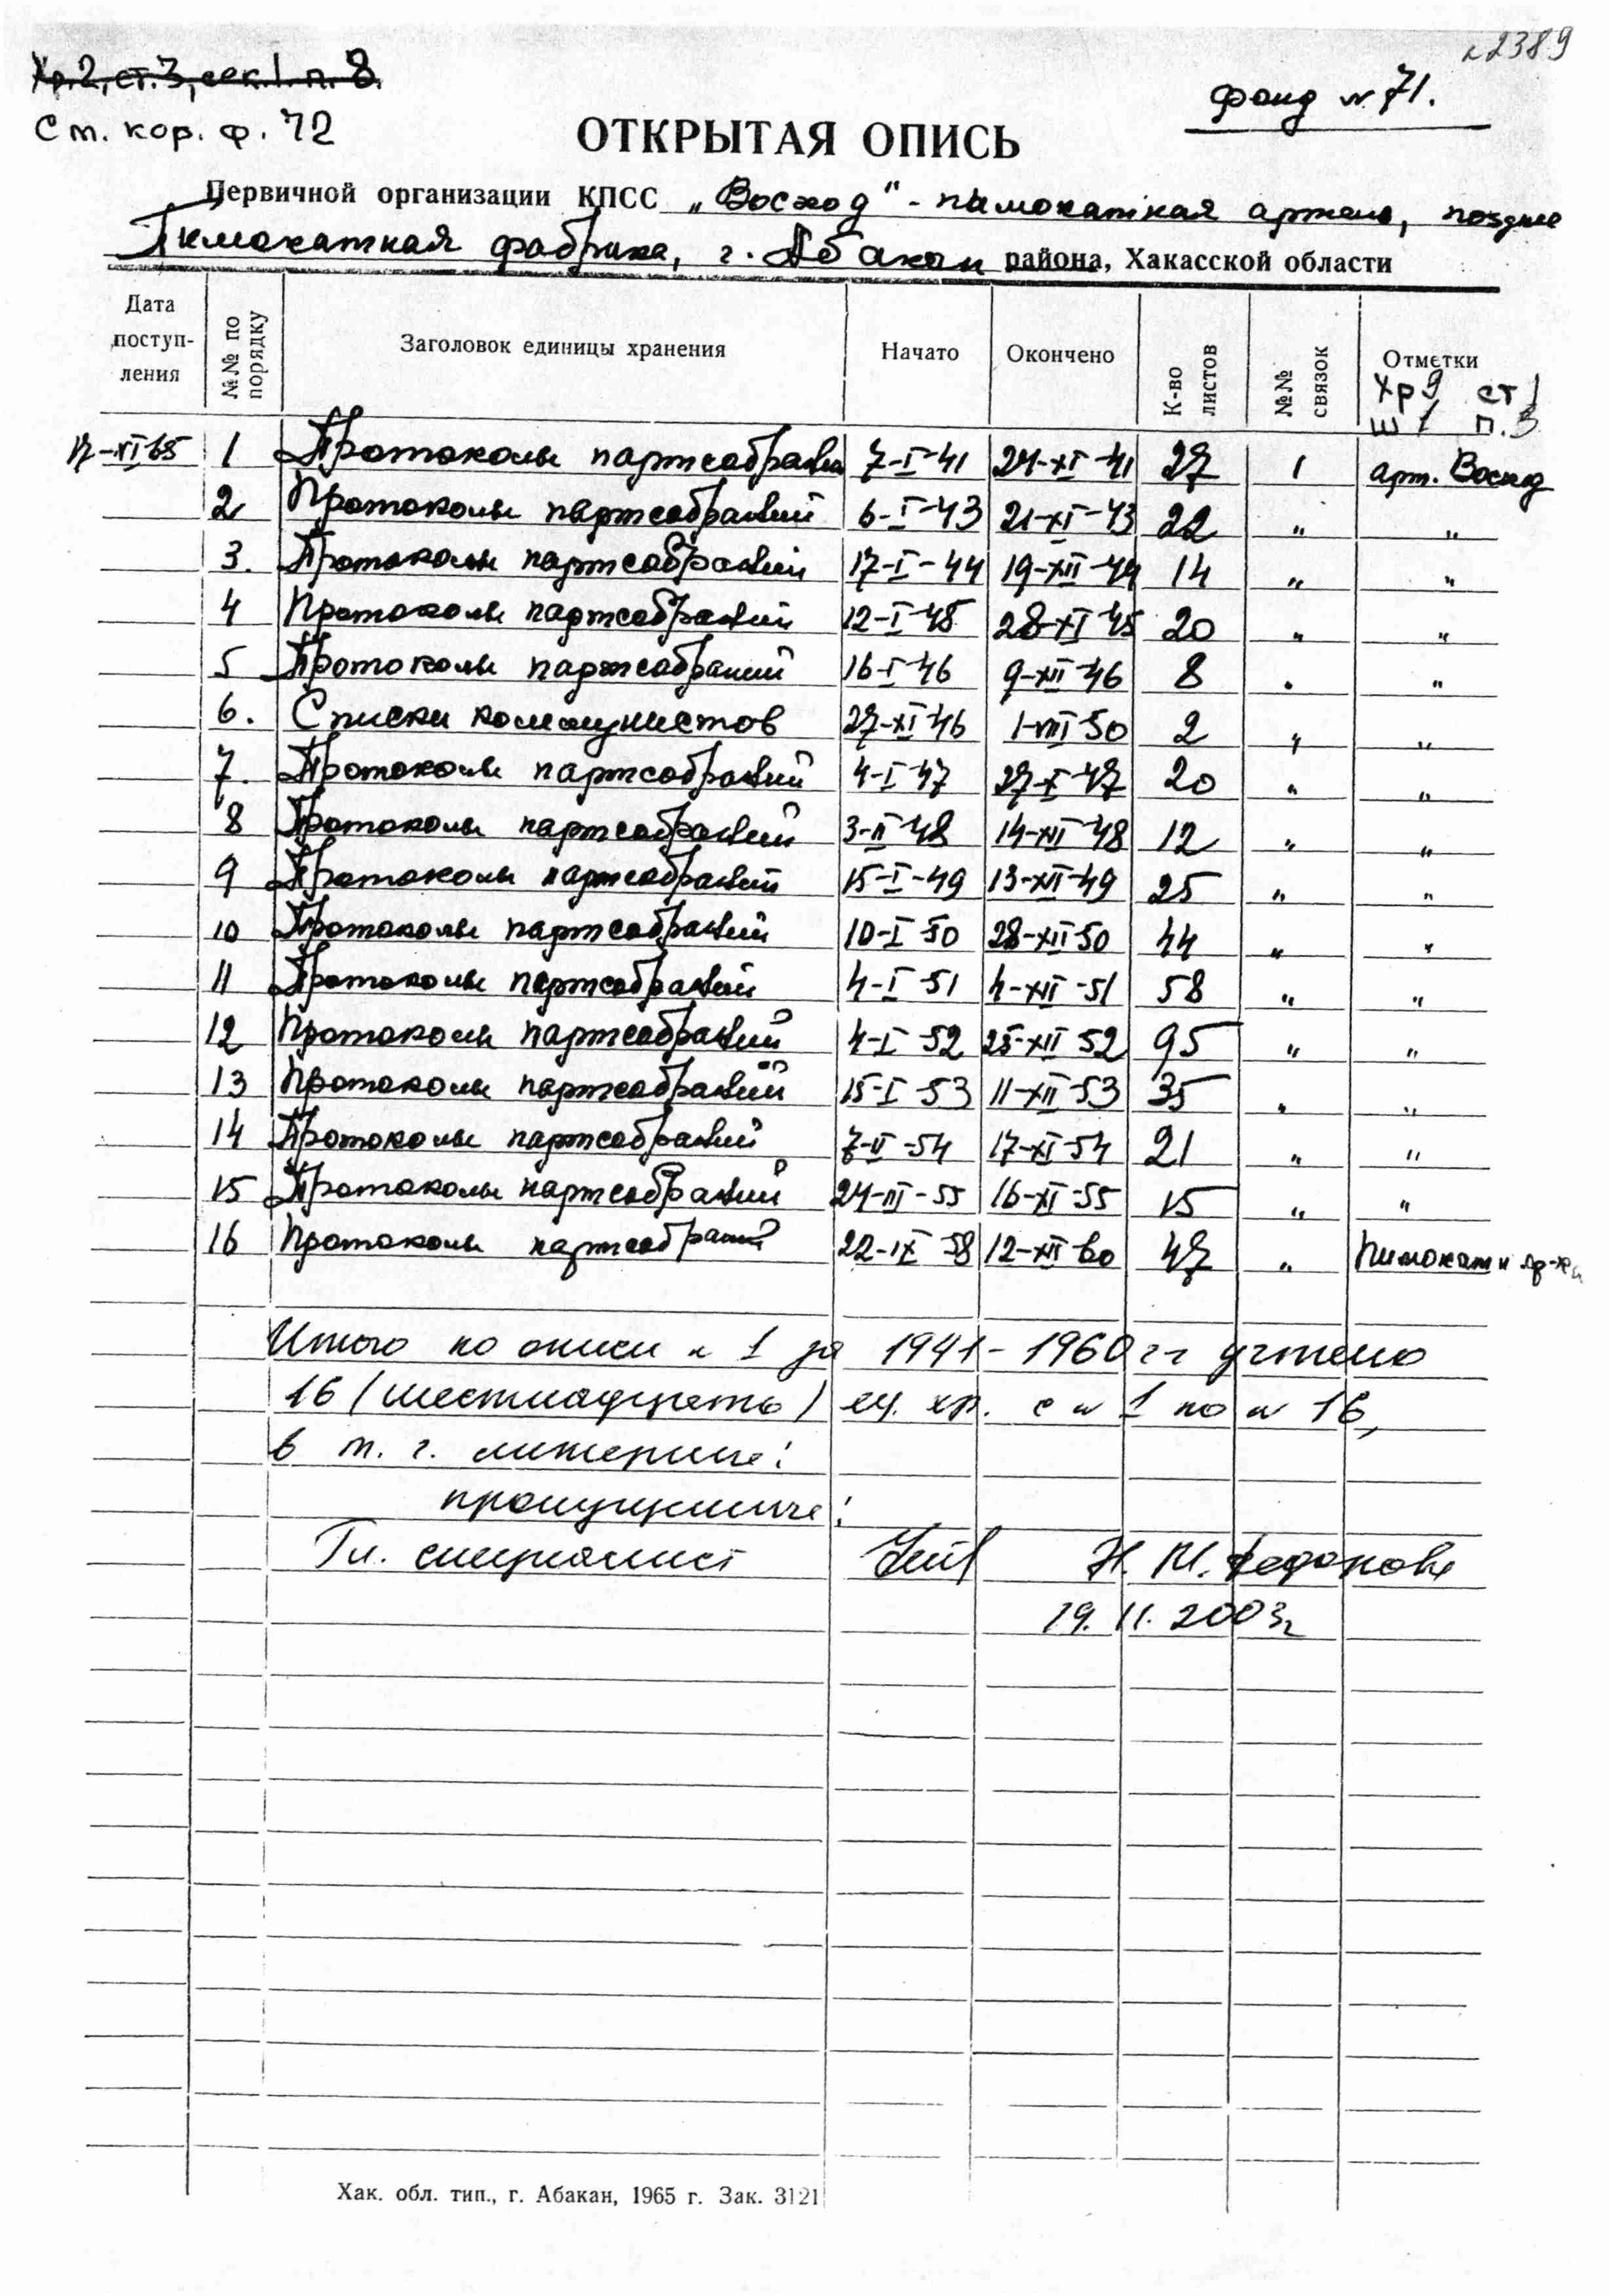 2389
Хр.2, ст.3, сек.1. п. 8.
фонд №71.
См. кор. ф. 72
ОТКРЫТАЯ ОПИСЬ
Первичной организации КПСС „Восход" - пимокатная артель, позднее
Пимокатная фабрика, г. Абакан района, Хакасской области
Дата поступ-ления №№ по порядку Заголовок единицы хранения Начато Окончено К-во листов №№ связок Отметки
Хр 9 ст 1
ш 1 п. 3
17-XI-65 1 Протоколы партсобраний 7-I-41 24-XI-41 27 1 арт. Восход
2 Протоколы партсобраний 6-I-43 21-XI-43 22 „ „
3. Протоколы партсобраний 17-I-44 19-XII-44 14 „ „
4 Протоколы партсобраний 12-I-45 28-XI-45 20 „ „
5 Протоколы партсобраний 16-I-46 9-XII-46 8 „ „
6. Списки коммунистов 27-XI-46 1-VIII-50 2 „ „
7. Протоколы партсобраний 4-I-47 27-X-47 20 „ „
8 Протоколы партсобраний 3-II-48 14-XII-48 12 „ „
9 Протоколы партсобраний 15-I-49 13-XII-49 25 „ „
10 Протоколы партсобраний 10-I-50 28-XII-50 44 „ „
11 Протоколы партсобраний 4-I-51 4-XII-51 58 „ „
12 Протоколы партсобраний 4-I-52 25-XII-52 95 „ „
13 Протоколы партсобраний 15-I-53 11-XII-53 35 „ „
14 Протоколы партсобраний 7-II-54 17-XI-54 21 „ „
15 Протоколы партсобраний 24-III-55 16-XI-55 15 „ „
16 Протоколы партсобраний 22-IX-58 12-XII-60 47 „ Пимокатн
Итого по описи № 1 за 1941-1960 гг учтено
16 (шестнадцать) ед. хр. с № 1 по № 16,
в т. ч. литерные:
пропущенные:
Гл. специалист Н. М.
19. 11. 2003г
Хак. обл. тип., г. Абакан, 1965 г. Зак. 3121